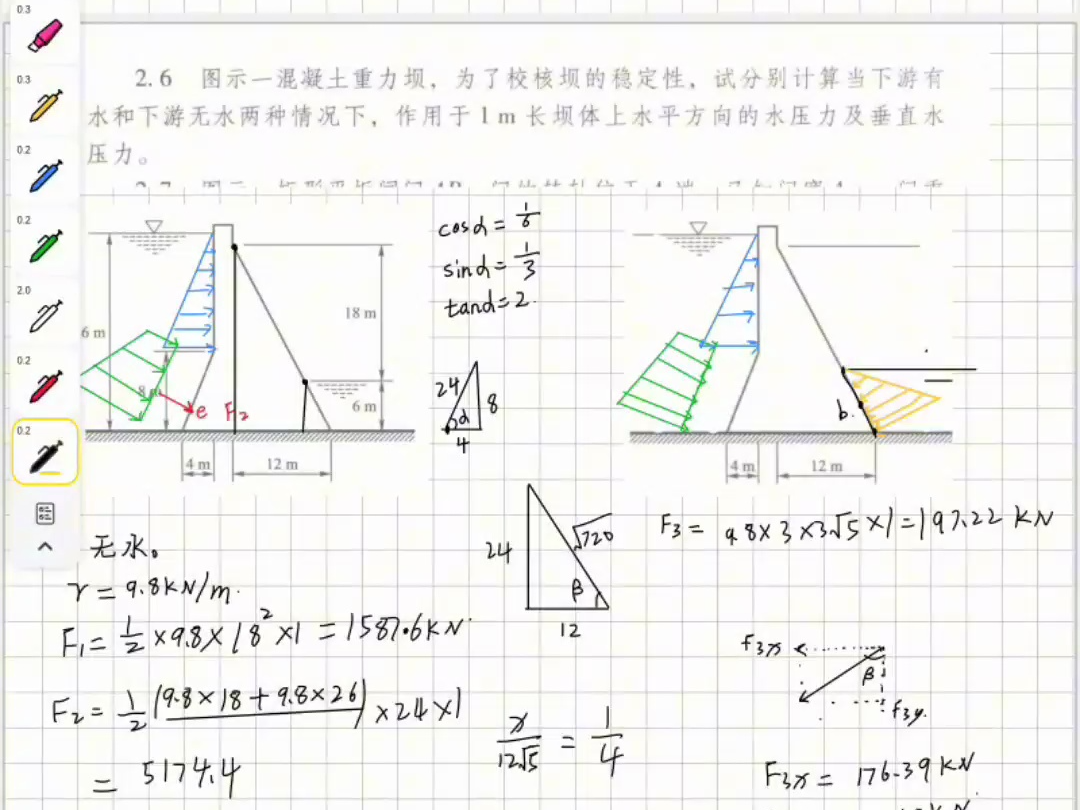 0.3
0.3
0.2
0.2
2.0
0.2
0.2
2.6 图示一混凝土重力坝，为了校核坝的稳定性，试分别计算当下游有
水和下游无水两种情况下，作用于1m长坝体上水平方向的水压力及垂直水
压力。
6 m
8 m
e F₂
18 m
6 m
4 m
12 m
cosα = 1/6
sinα = 1/3
tanα = 2.
24
8
α
4
b.
4 m
12 m
无水。
γ = 9.8kN/m.
F₁ = 1/2 ×9.8×18²×1 = 1587.6kN.
F₂ = 1/2 (9.8×18+9.8×26) ×24×1
= 5174.4
24
√720
β
12
x/12√5 = 1/4
F₃ = 9.8×3×3√5×1=197.22 KN
f₃x
β
f₃y.
F₃x = 176.39 KN